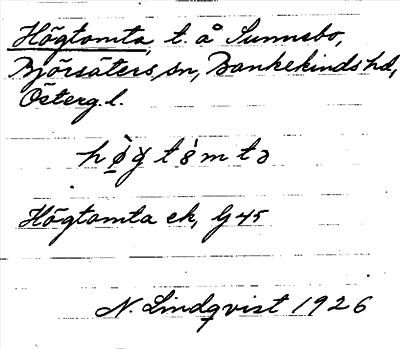 Högtomta, t. å Sunnebo,
Björsäters sn, Bankekinds hd,
Österg. l.
hø̀g tòmtə
Högtomta ek, G 45
N. Lindqvist 1926